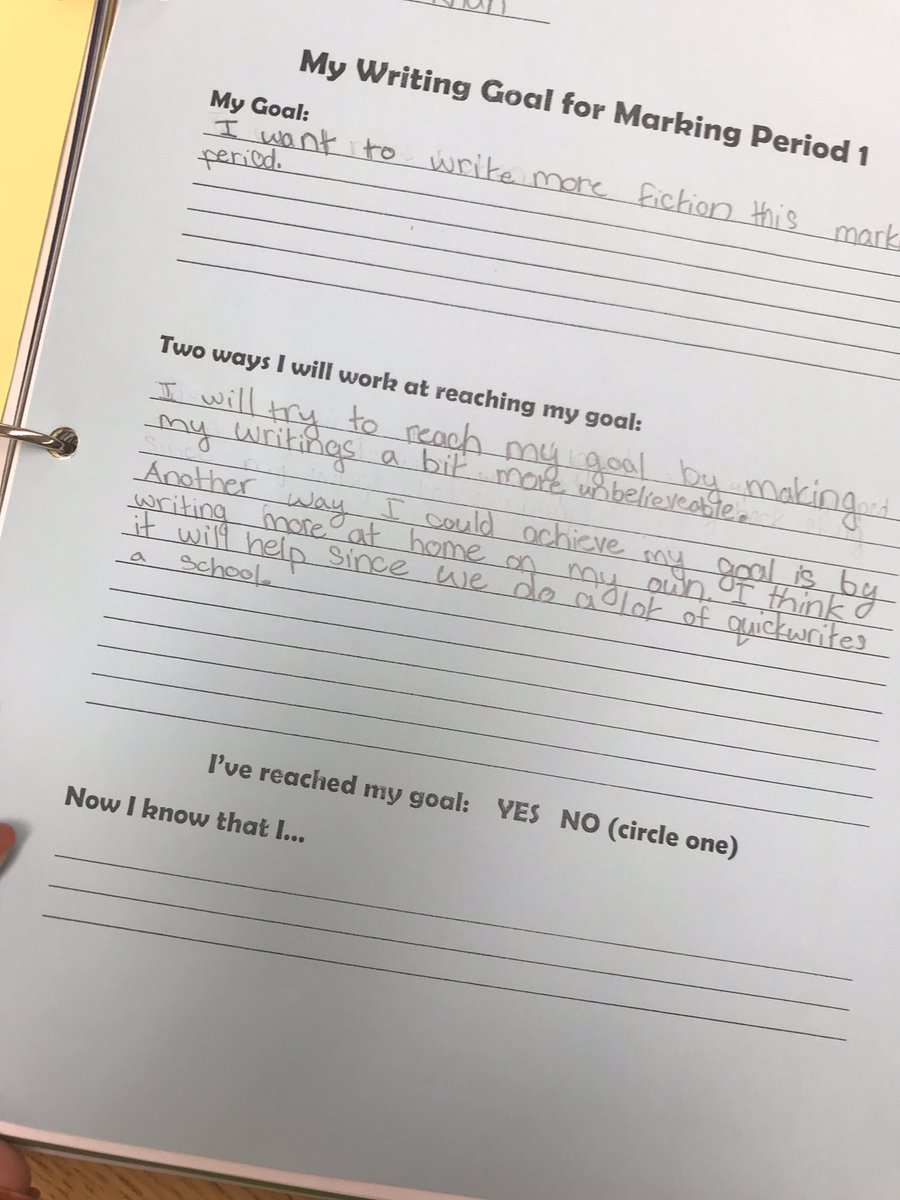 My Writing Goal for Marking Period 1
My Goal:
I want to write more fiction this mark
period.
Two ways I will work at reaching my goal:
I will try to reach my goal by making
my writings a bit more unbelieveable.
Another way I could achieve my goal is by
writing more at home on my own. I think
it will help since we do a lot of quickwrites
a school.
I've reached my goal: YES NO (circle one)
Now I know that I...